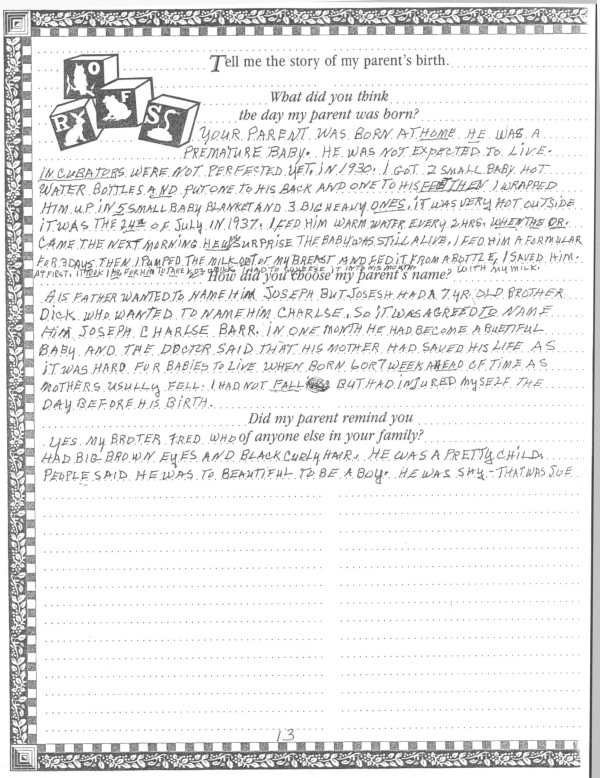 O
R F S
Tell me the story of my parent's birth.
What did you think
the day my parent was born?
YOUR PARENT WAS BORN AT HOME. HE WAS A
PREMATURE BABY. HE WAS NOT EXPECTED TO LIVE.
INCUBATORS WERE NOT PERFECTED YET, IN 1930. I GOT 2 SMALL BABY HOT
WATER BOTTLES AND PUT ONE TO HIS BACK AND ONE TO HIS FEET THEN I WRAPPED
HIM UP IN 5 SMALL BABY BLANKET AND 3 BIG HEAVY ONES. IT WAS VERY HOT OUTSIDE
IT WAS THE 24th OF JULY. IN 1937. I FED HIM WARM WATER EVERY 2 HRS. WHEN THE DR.
CAME THE NEXT MORNING SURPRISE THE BABY WAS STILL ALIVE. I FED HIM A FORMULAR
FOR 3 DAYS THEN I PUMPED THE MILK OUT OF MY BREAST AND FED IT FROM A BOTTLE, I SAVED HIM.
AT FIRST. IT TOOK 1 HR FOR HIM TO TAKE OZ OF MILK. I HAD TO SQUEEZE IT INTO HIS MOUTH. WITH MY MILK.
How did you choose my parent's name?
HIS FATHER WANTED TO NAME HIM JOSEPH BUT JOSESH HAD A 7 YR OLD BROTHER
DICK WHO WANTED TO NAME HIM CHARLSE. SO IT WAS AGREED TO NAME
HIM JOSEPH CHARLSE BARR. IN ONE MONTH HE HAD BECOME A BUETIFUL
BABY AND THE DOCTOR SAID THAT HIS MOTHER HAD SAVED HIS LIFE AS
IT WAS HARD FOR BABIES TO LIVE WHEN BORN 6 OR 7 WEEK AHEAD OF TIME AS
MOTHERS USULLY FELL. I HAD NOT FALL BUT HAD INJURED MYSELF THE
DAY BEFORE HIS BIRTH.
Did my parent remind you
of anyone else in your family?
YES. MY BROTER FRED WHO
HAD BIG BROWN EYES AND BLACK CURLY HAIR. HE WAS A PRETTY CHILD.
PEOPLE SAID HE WAS TO BEAUTIFUL TO BE A BOY. HE WAS SHY. - THAT WAS JOE
13